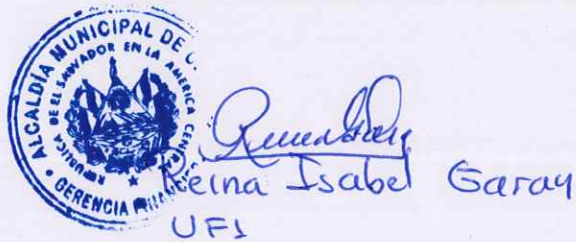 ALCALDÍA MUNICIPAL DE
REPUBLICA DE EL SALVADOR EN LA AMERICA CENTRAL
GERENCIA
Reina Isabel Garay
UFI